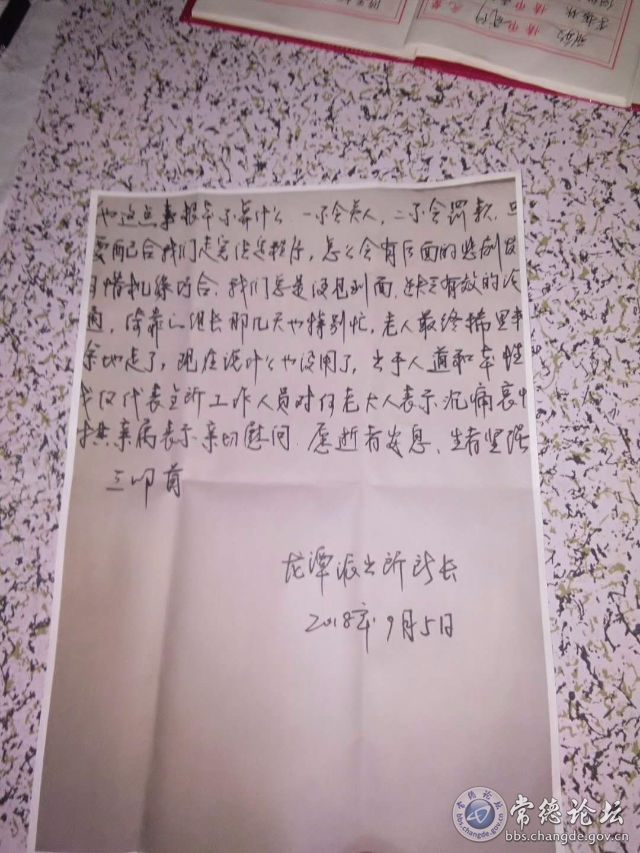 也这点事根本不算什么．一不会关人，二不会罚款．只
要配合我们走完法定程序，怎么会有后面的悲剧发
惜机缘巧合．我们总是没见到面，缺乏有效的沟
通，组长那几天也特别忙，老人最终稀里糊
涂地走了，现在说什么也没用了，出于人道和本性
我仅代表全所工作人员对何老大人表示沉痛哀
其亲属表示亲切慰问．愿逝者安息、生者坚强
三叩首
龙潭派出所所长
2018年9月5日
常德论坛
bbs.changde.gov.cn